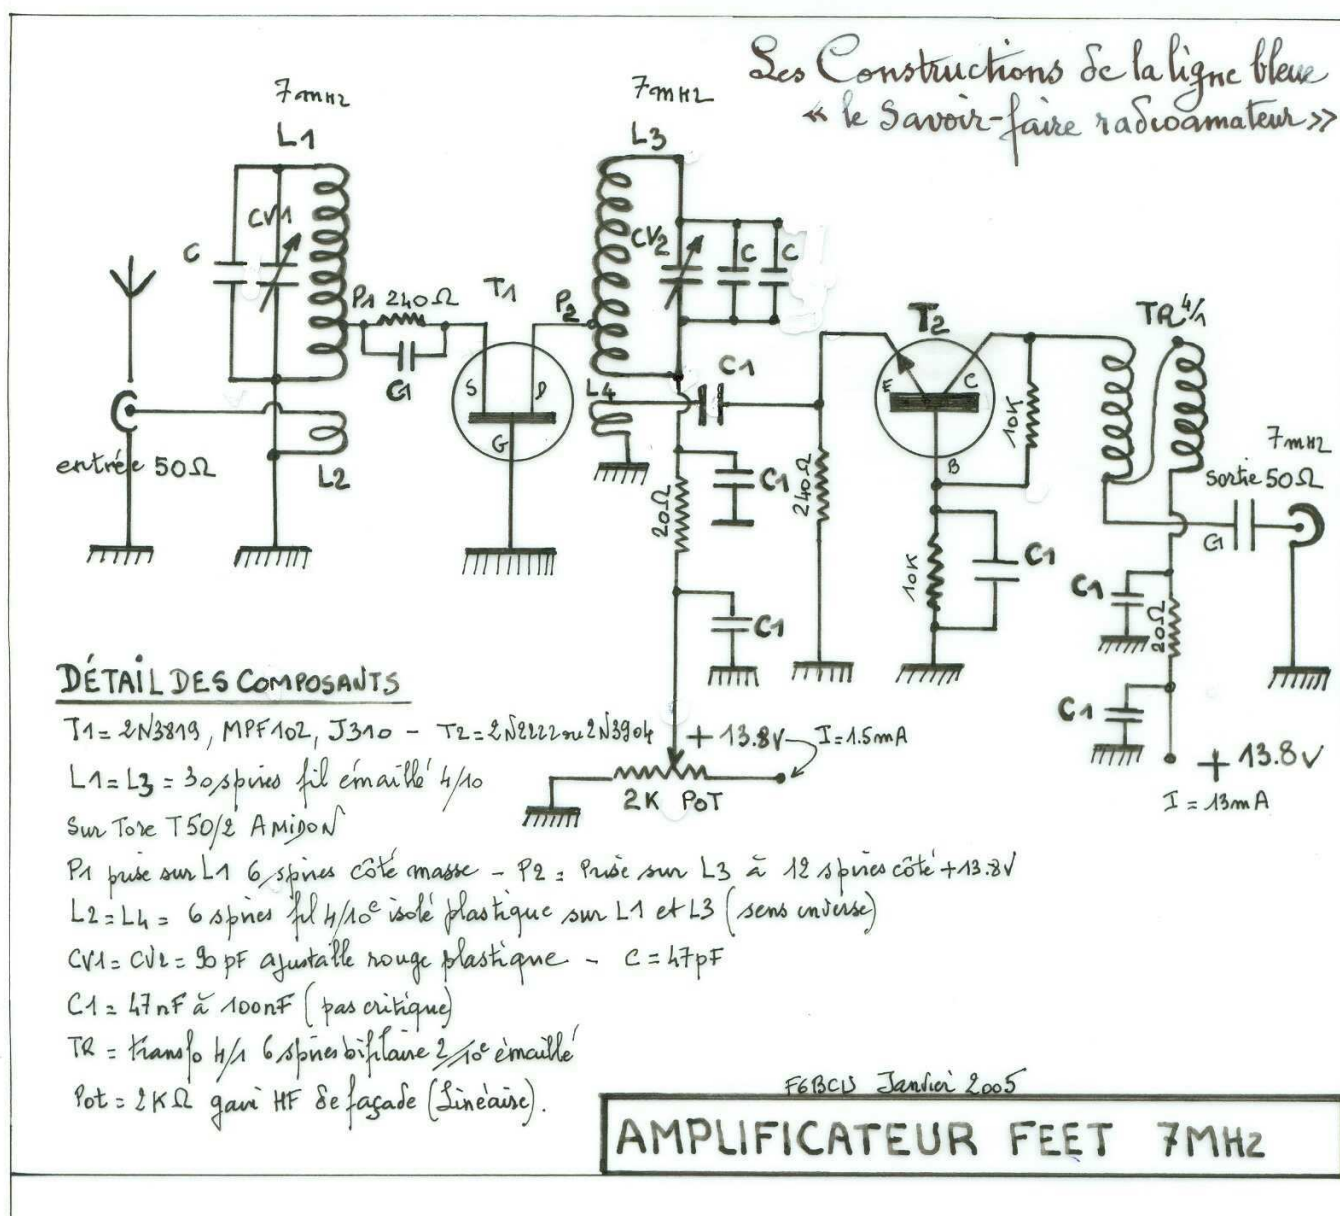 Les Constructions de la ligne bleue
« le Savoir-faire radioamateur »
7mHz
L1
7mHz
L3
C
CV1
P1 240Ω
C1
T1
P2
CV2
C
C
S
D
G
L4
C1
T2
E
C
B
10K
TR 4/1
entrée 50Ω
L2
20Ω
C1
240Ω
10K
C1
7mHz
Sortie 50Ω
C1
C1
20Ω
C1
C1
+ 13.8V
I = 13mA
DÉTAIL DES COMPOSANTS
T1= 2N3819, MPF102, J310 - T2= 2N2222 ou 2N3904
+ 13.8V
I=1.5mA
2K POT
L1= L3 = 30 spires fil émaillé 4/10
Sur Tore T50/2 AMIDON
P1 prise sur L1 6 spires côté masse - P2 = Prise sur L3 à 12 spires côté +13.8V
L2= L4 = 6 spires fil 4/10e isolé plastique sur L1 et L3 (sens inverse)
CV1= CV2= 90 pF ajustable rouge plastique - C = 47pF
C1= 47nF à 100nF (pas critique)
TR = transfo 4/1 6 spires bifilaire 2/10e émaillé
Pot = 2KΩ gain HF de façade (Linéaire).
F6BCU Janvier 2005
AMPLIFICATEUR FEET 7MHz